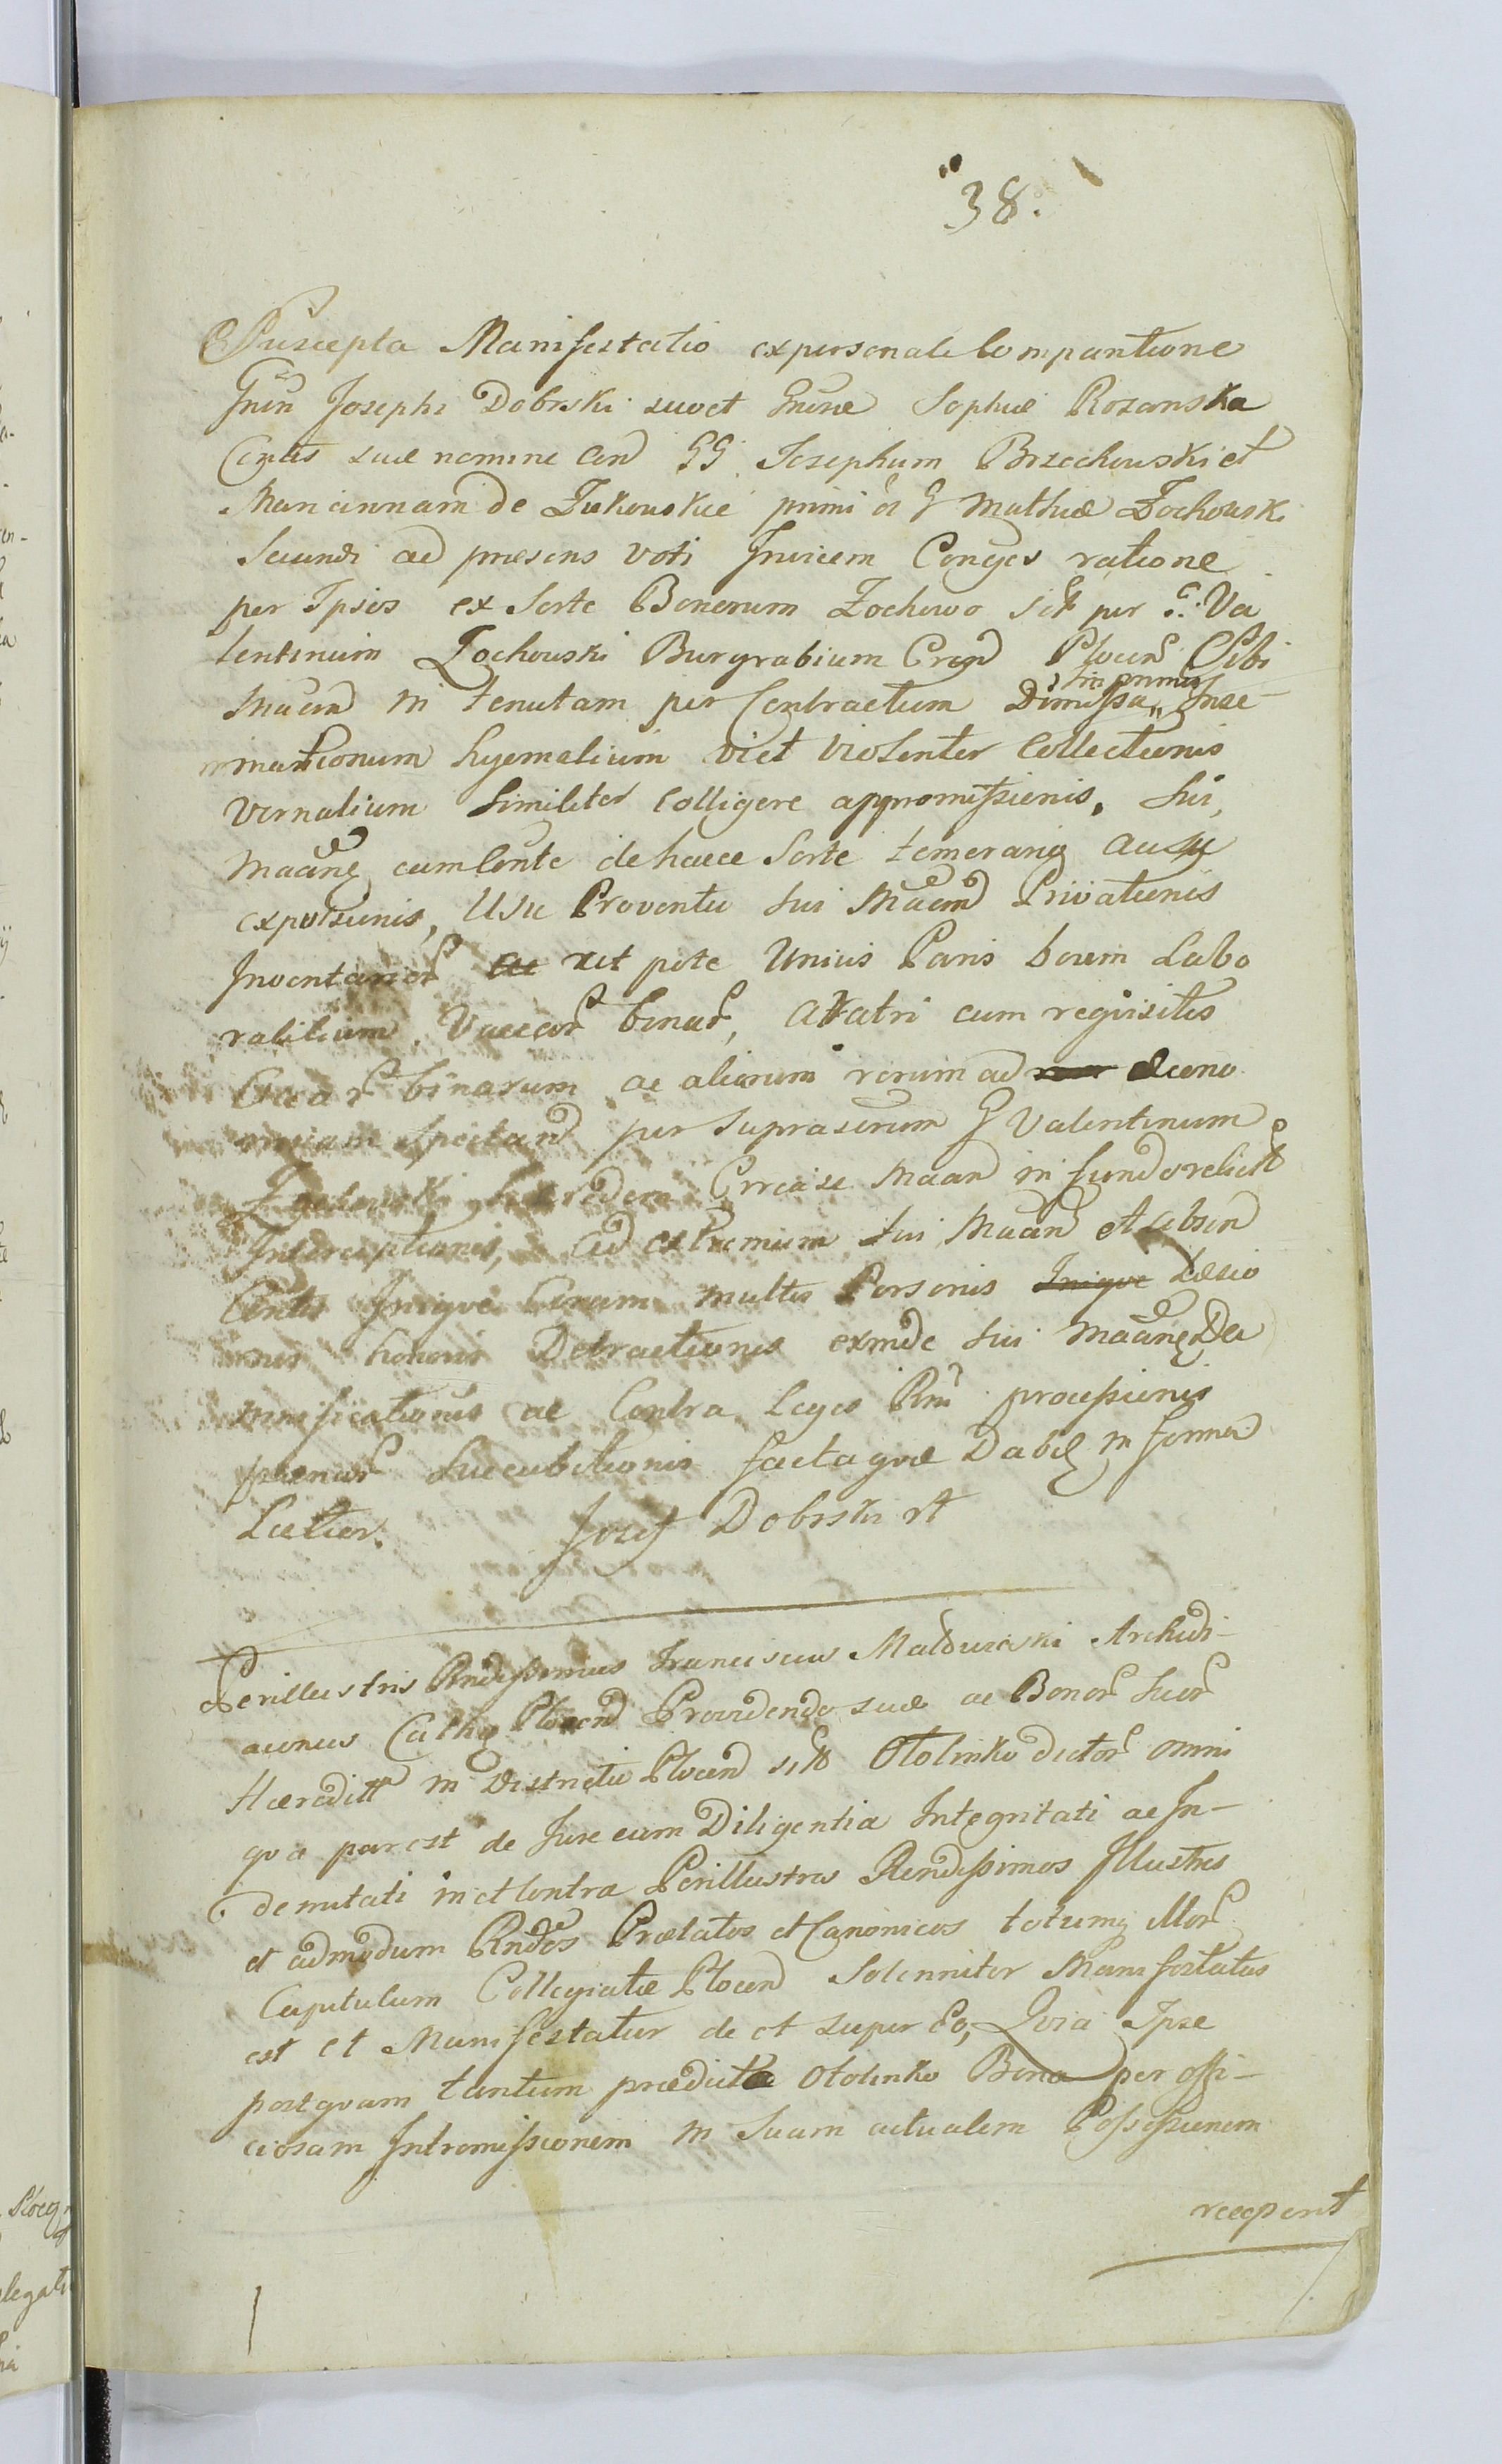 38.
Suscepta Manifestatio ex personali Comparitione
Gnin Josephi Dobrski suo et Gnine Sophiae Rozanska
Contis suae nomine Con GG Josephum Brzechowski et
Mariannam de Zukowskie primi et G Mathiae Zochowski
Secundi ad praesens voti Invicem Conges ratione
per Ipsos ex Sorte Bonorum Zochowo sit per G. Va
lentinum Zochowski Burgrabium Crend Plocen Sibi
Maend in tenutam per Contractum Dimissa, in primis Inse-
minationum hyemalium vi et violenter Collectionis
Vernalium Similiter Colligere appromissionis, Sui,
Maang cum Conte de hacce Sorte temerariis ausis
expulsionis, Usu Proventu Sui Maend Privationis
Inventarior ac ut pote Unius Paris boum Labo
rabilium, Vaccar binar, aratri cum requisitis
binarum ac aliorum rerum ad Oecono
miam Spectand per suprascrum G Valentinum
Zochowski haeredem Crecise Maan in fundo relict
Interceptionis, Ad extremum Sui Maan et absen
Contis Inique Coram multis Personis Inique Laesio
nis honoris Detractionis exinde Sui Maang Da
mnificationis ac Contra Leges Rni processionis
paenar Succubitionis facta que Dabit in forma
Latior. Jozef Dobrski rt
Perillustris Rndissimus Franciscus Matduszski Archidi-
aconus Cathg Plocend Providendo suae ac Bonor Suor
Haereditt in Districtu Plocend sitt Otolinko dictor omni
qua par est de Jure eum Diligentia Integritati ac In-
demnitati in et Contra Perillustres Rendissimos Illustres
et admodum Rndos Praelatos et Canonicos totumq Illor
Capitulum Collegiatae Plocend Solenniter Manifestatus
est et Manifestatur de et super Eo, Quia Ipse
postquam tantum praedicta Otolinko Bona per offi-
ciosam Intromissionem in Suam actualem Possessionem
recepent